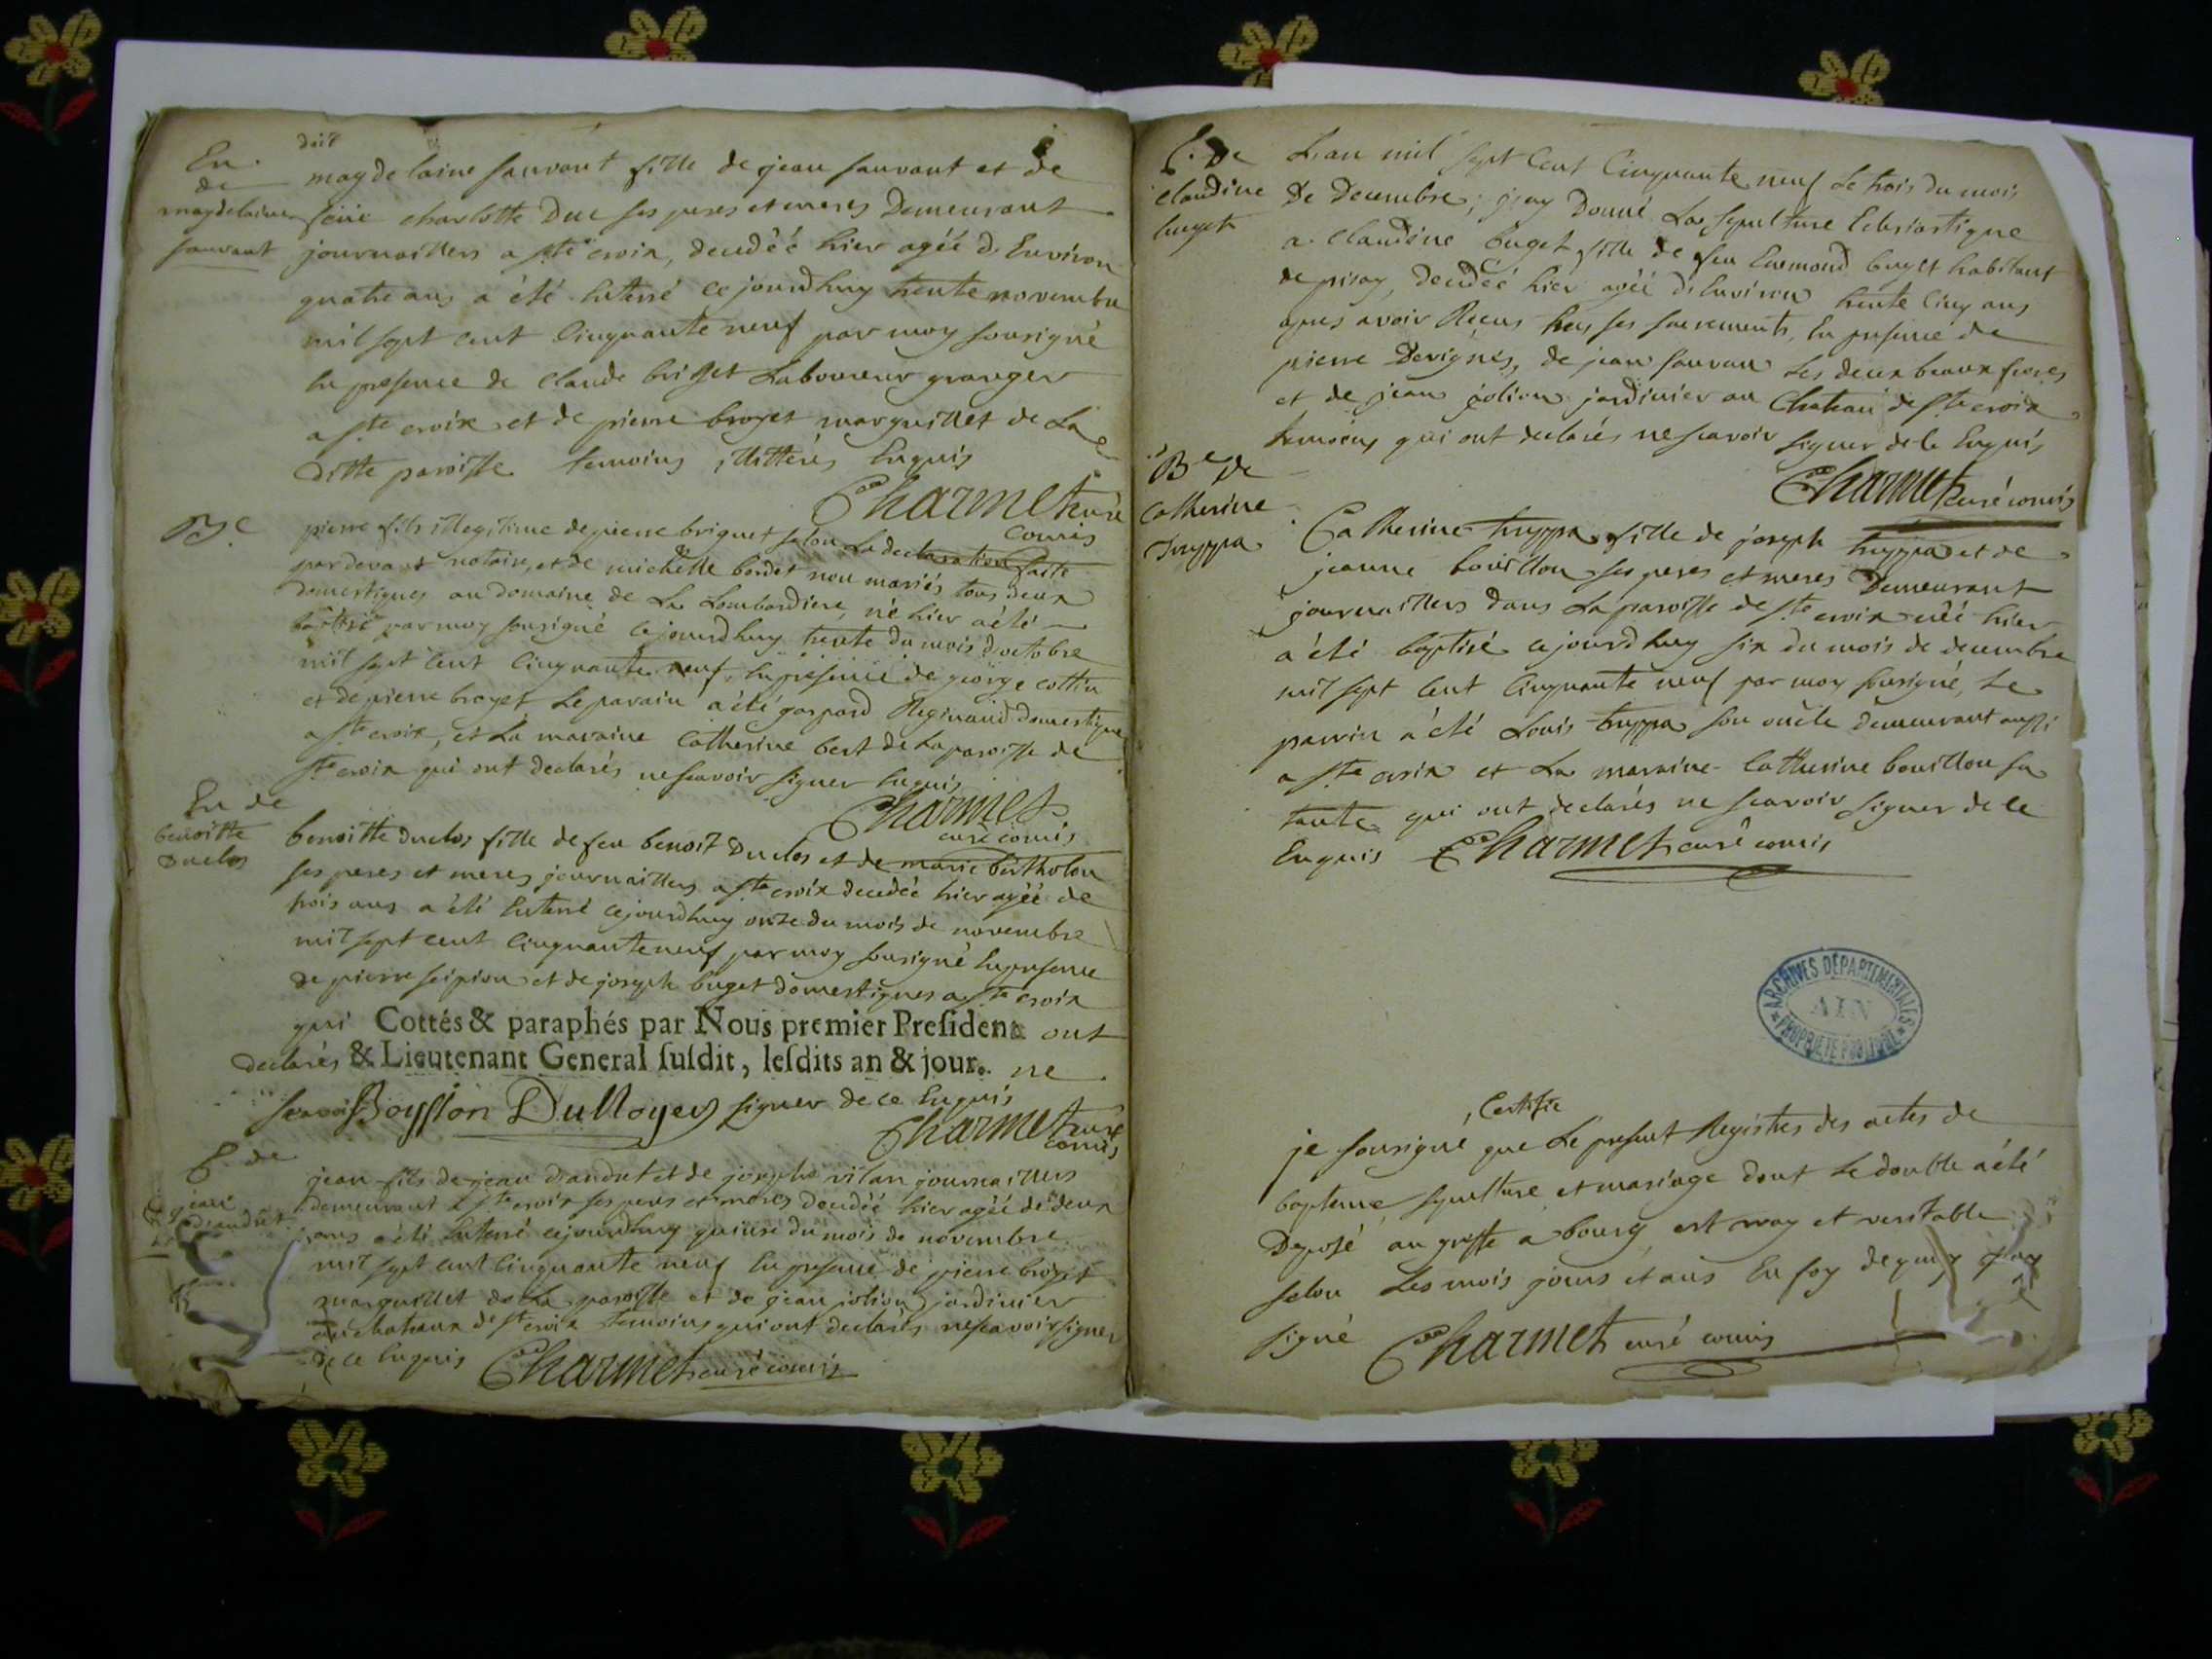 En.
de
magdelaine
sauvant
doit
magdelaine sauvant fille de jean sauvant et de
feüe charlotte Duc ses peres et meres Demeurant
journailliers a ste croix, decedéé hier agéé d'Environ
quatre ans a été Enterré ce jourd'huy trente novembre
mil sept cent Cinquante neuf par moy sousigné
En presence de Claude brisset Laboureur granger
a ste croix et de pierre broyet marguillet de La
ditte paroisse temoins illitterés Enquis
Charmet curé
comis
B.e
pierre fils illegitime de pierre briguet selon La declaration faite
pardevant notaire, et de michelle bordet non mariés tous deux
domestiques au domaine de La Lombardiere, né hier a été
baptisé par moy sousigné ce jourd'huy trente du mois d'octobre
mil sept cent Cinquante neuf, En presence de george cottin
et de pierre broyet Le parain a été gaspard Reginaud domestique
a ste croix, et La maraine Catherine best de La paroisse de
ste croix qui ont declarés ne scavoir signer Enquis
Charmet
curé comis
En de
benoitte
Duclos
benoitte duclos fille de feu benoit Duclos et de marie bertholon
ses peres et meres journailliers a ste croix decedéé hier agéé de
trois ans a été Enterré ce jourd'huy onze du mois de novembre
mil sept cent Cinquante neuf par moy sousigné En presence
de pierre scipion et de joseph buget domestiques a ste croix
qui Cottés & paraphés par Nous premier President ont
declarés & Lieutenant General susdit, lesdits an & jour. ne
scavoir Boysson DuNoyer signer de ce Enquis
Charmet curé
comis
E. de
jean
Dandut
jean fils de jean Dandut et de josephe vilan journailliers
demeurant a ste croix ses peres et meres decedéé hier agéé de deux
ans a été Enterré ce jourd'huy quinze du mois de novembre
mil sept cent Cinquante neuf En presence de pierre broyet
marguillet de La paroisse et de jean jolion jardinier
au chateaux de ste croix temoins qui ont declarés ne scavoir signer
de ce Enquis Charmet curé comis
E. De
claudine
buget
L'an mil sept Cent Cinquante neuf Le trois du mois
De Decembre, j'ay Donné La sepulture Eclesiastique
a Claudine buget fille de feu Enemond buget habitant
de pisay, decedéé hier agéé d'Environ trente Cinq ans
apres avoir Recus tous ses sacrements, En presence de
pierre Devignes, de jean sauvan Les deux beaux freres
et de jean jolion jardinier au Chateau de ste croix
temoins qui ont declarés ne scavoir signer de ce Enquis
Charmet curé comis
Be de
Catherine
truppa
Catherine truppa fille de joseph truppa et de
jeanne bouillon ses peres et meres Demeurant
journailliers dans La paroisse de ste croix néé hier
a été baptisé ce jourd'huy six du mois de decembre
mil sept cent Cinquante neuf par moy sousigné, Le
parrin a été Louis truppa son oncle demeurant aussi
a ste croix et La maraine Catherine bouillon sa
tante qui ont declarés ne scavoir signer de ce
Enquis Charmet curé comis
ARCHIVES DÉPARTEMENTALES
AIN
PROPRIÉTÉ PUBLIQUE
Certifie
je sousigné que Le present Registres des actes de
bapteme, sepulture, et mariage dont Le double a été
Deposé au greffe a bourg est vray et veritable
selon Les mois jours et ans En foy de quoy j'ay
signé Charmet curé comis